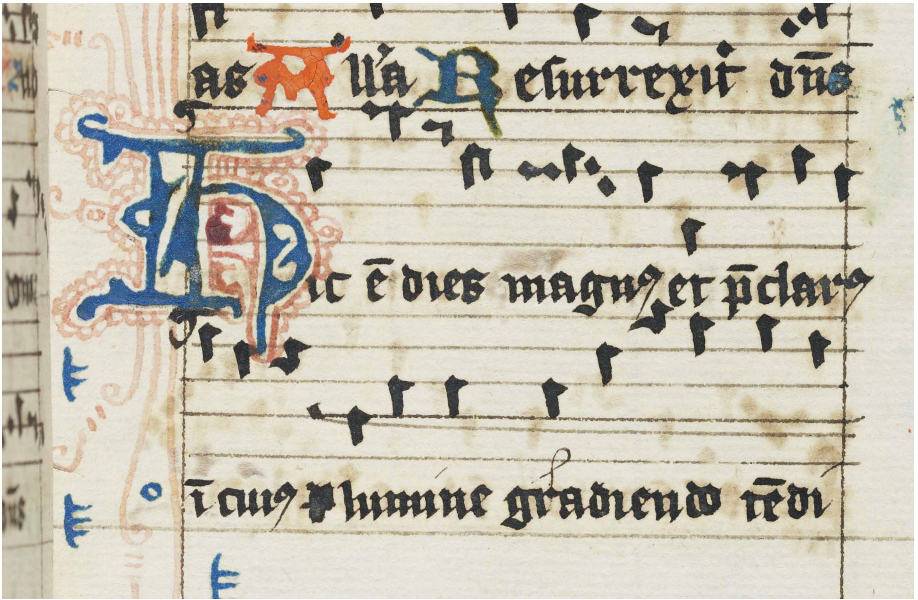 as Alla Resurrexit dn̄s
Hic ē dies magnꝰ et p̄clarꝰ
ī cuiꝰ lumine gradiendo tēdi